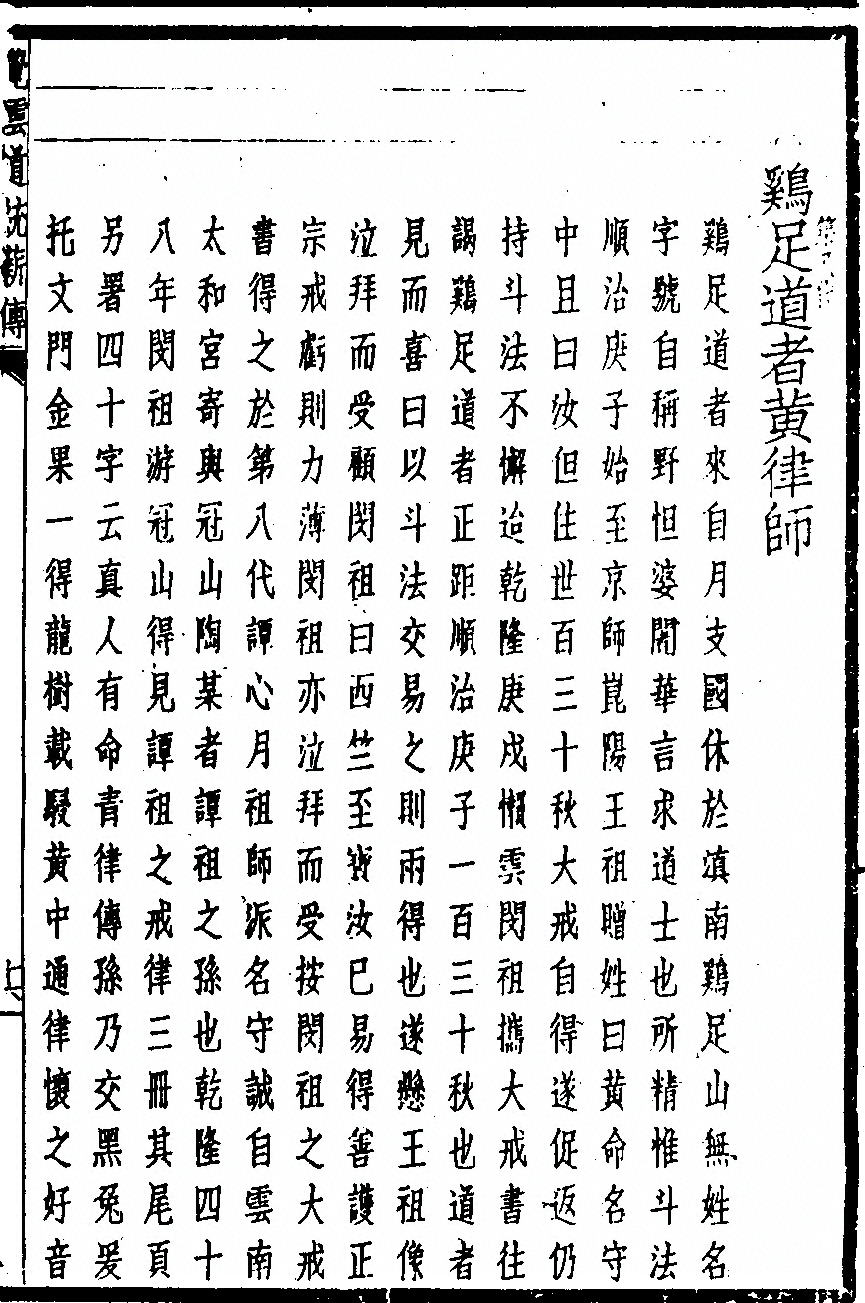 鷄足道者黄律師
第八代
鷄足道者來自月支國休於滇南鷄足山無姓名
字號自稱野怛婆闍華言求道士也所精惟斗法
順治庚子始至京師崑陽王祖贈姓曰黄命名守
中且曰汝但住世百三十秋大戒自得遂促返仍
持斗法不懈迨乾隆庚戌懶雲閔祖攜大戒書往
謁鷄足道者正距順治庚子一百三十秋也道者
見而喜曰以斗法交易之則兩得也遂懸王祖像
泣拜而受顧閔祖曰西竺至寳汝已易得善護正
宗戒虧則力薄閔祖亦泣拜而受按閔祖之大戒
書得之於第八代譚心月祖師派名守誠自雲南
太和宮寄與冠山陶某者譚祖之孫也乾隆四十
八年閔祖游冠山得見譚祖之戒律三冊其尾頁
另署四十字云真人有命青律傳孫乃交黑兔爰
托文門金果一得龍樹載駸黄中通律懷之好音
龍雲道統薪傳